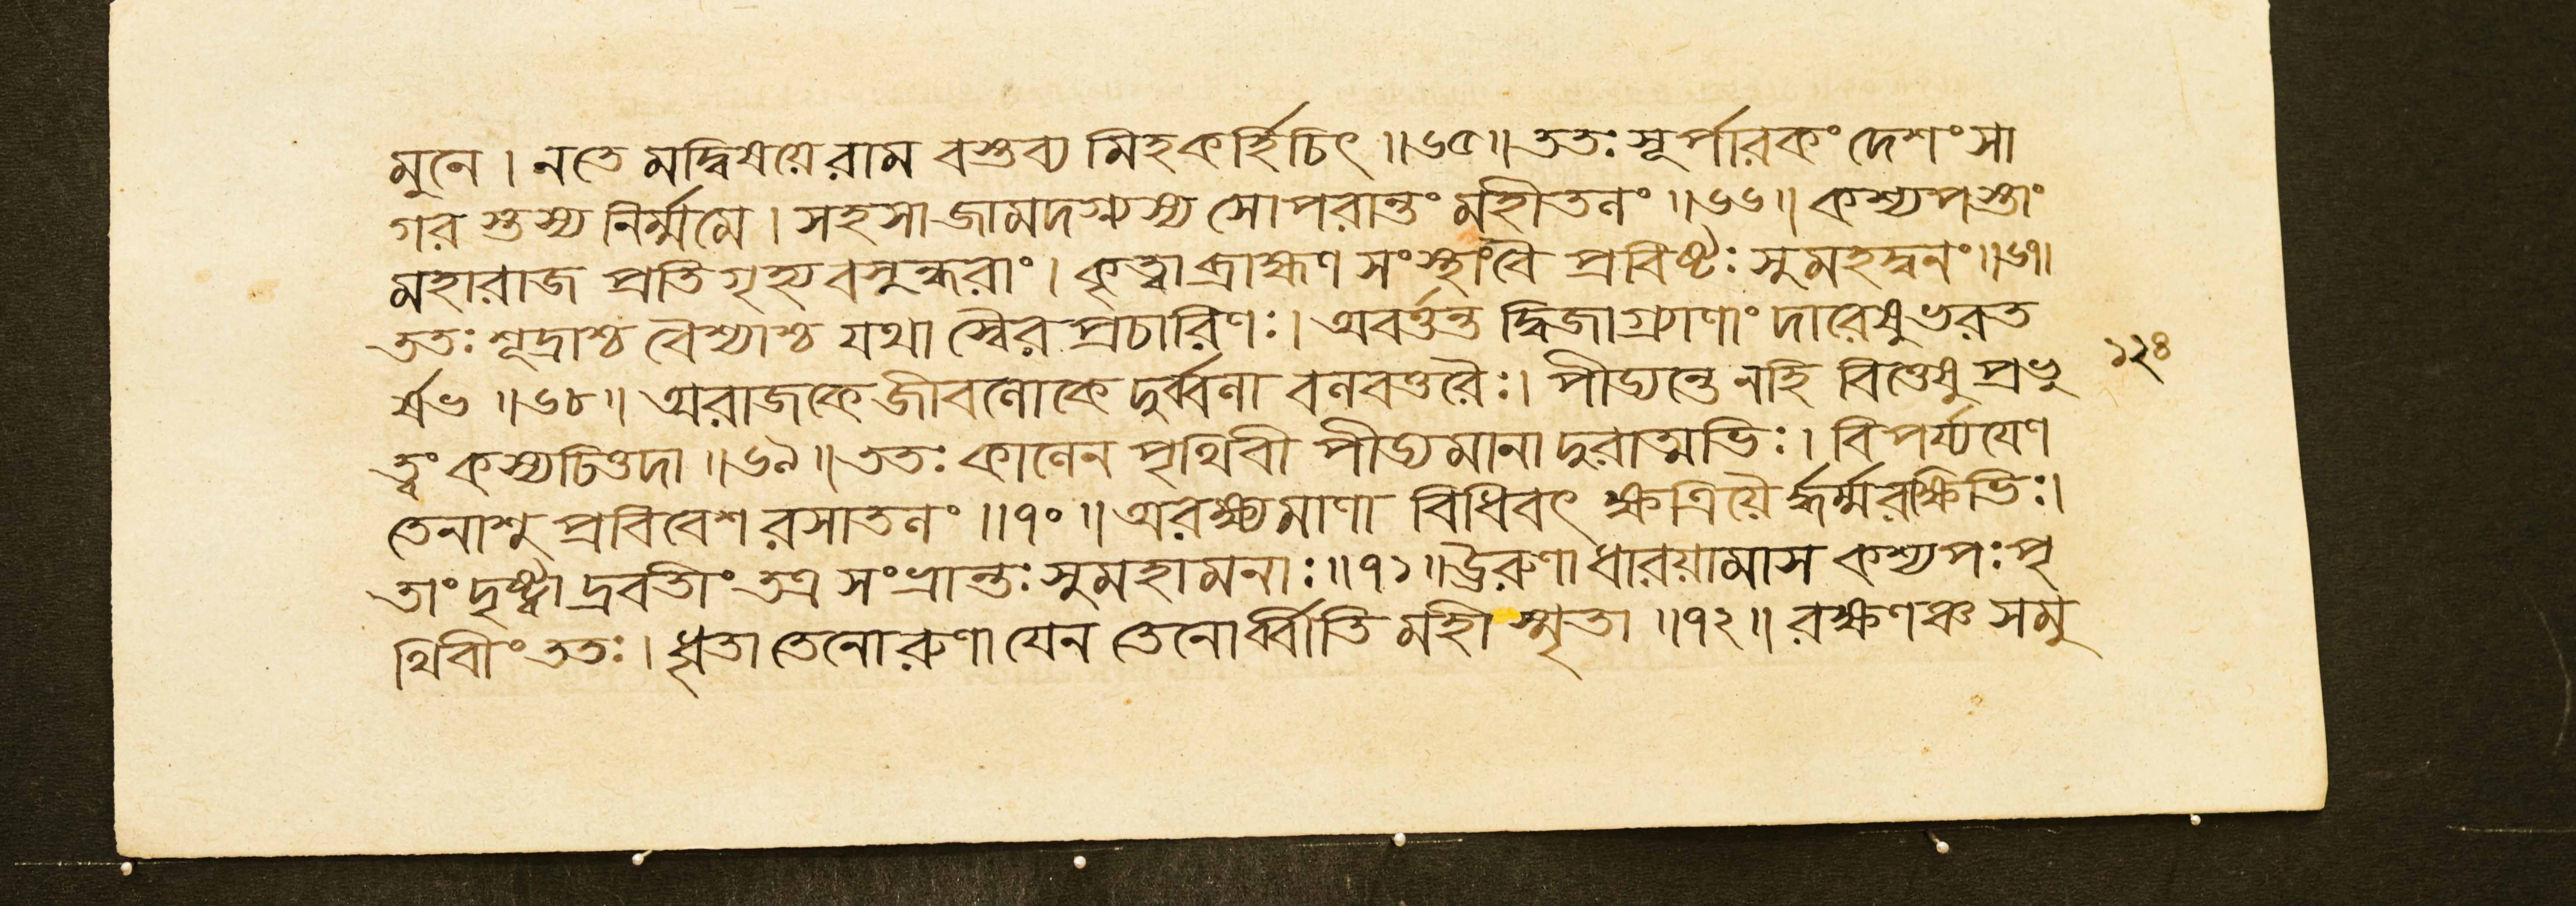 মুনে । নতে মদ্বিষয়ে রাম বস্তব্য মিহকর্হিচিৎ ॥৬৫॥ ততঃ সূর্পারকং দেশং সা
গর স্তস্য নির্ম্মমে । সহসা জামদগ্ন্যস্য সোপরান্তং মহীতলং ॥৬৬॥ কশ্যপস্তাং
মহারাজ প্রতিগৃহ্য বসুন্ধরাং । কৃত্বা ব্রাহ্মণ সংস্থাংবৈ প্রবিষ্টঃ সুমহদ্বনং ॥৬৭॥
ততঃ শূদ্রাশ্চ বৈশ্যাশ্চ যথা স্বৈর প্রচারিণঃ । অবর্ত্তন্ত দ্বিজাগ্র্যাণাং দারেষু ভরত
র্ষভ ॥৬৮॥ অরাজকে জীবলোকে দুর্ব্বলা বলবত্তরৈঃ । পীড্যন্তে নহি বিত্তেষু প্রভু
ত্বং কস্যচিত্তদা ॥৬৯॥ ততঃ কালেন পৃথিবী পীড্যমানা দুরাত্মভিঃ । বিপর্য্যযেণ
তেনাশু প্রবিবেশ রসাতলং ॥৭০॥ অরক্ষ্যমাণা বিধিবৎ ক্ষত্রিয়ৈ র্দ্ধর্ম্মরক্ষিভিঃ ।
তাং দৃষ্ট্বা দ্রবতীং তত্র সংভ্রান্তঃ সুমহামনাঃ ॥৭১॥ ঊরুণা ধারয়ামাস কশ্যপঃ পৃ
থিবীং ততঃ । ধৃতা তেনোরুণা যেন তেনোর্ব্বীতি মহী স্মৃতা ॥৭২॥ রক্ষণঞ্চ সমু
১২৪